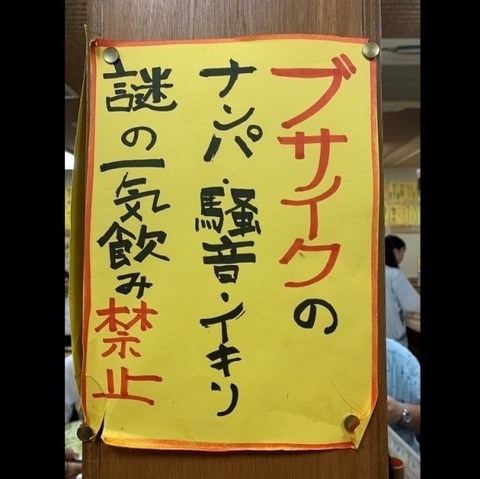 ブサイクの
ナンパ・騒音・イキリ
謎の一気飲み禁止